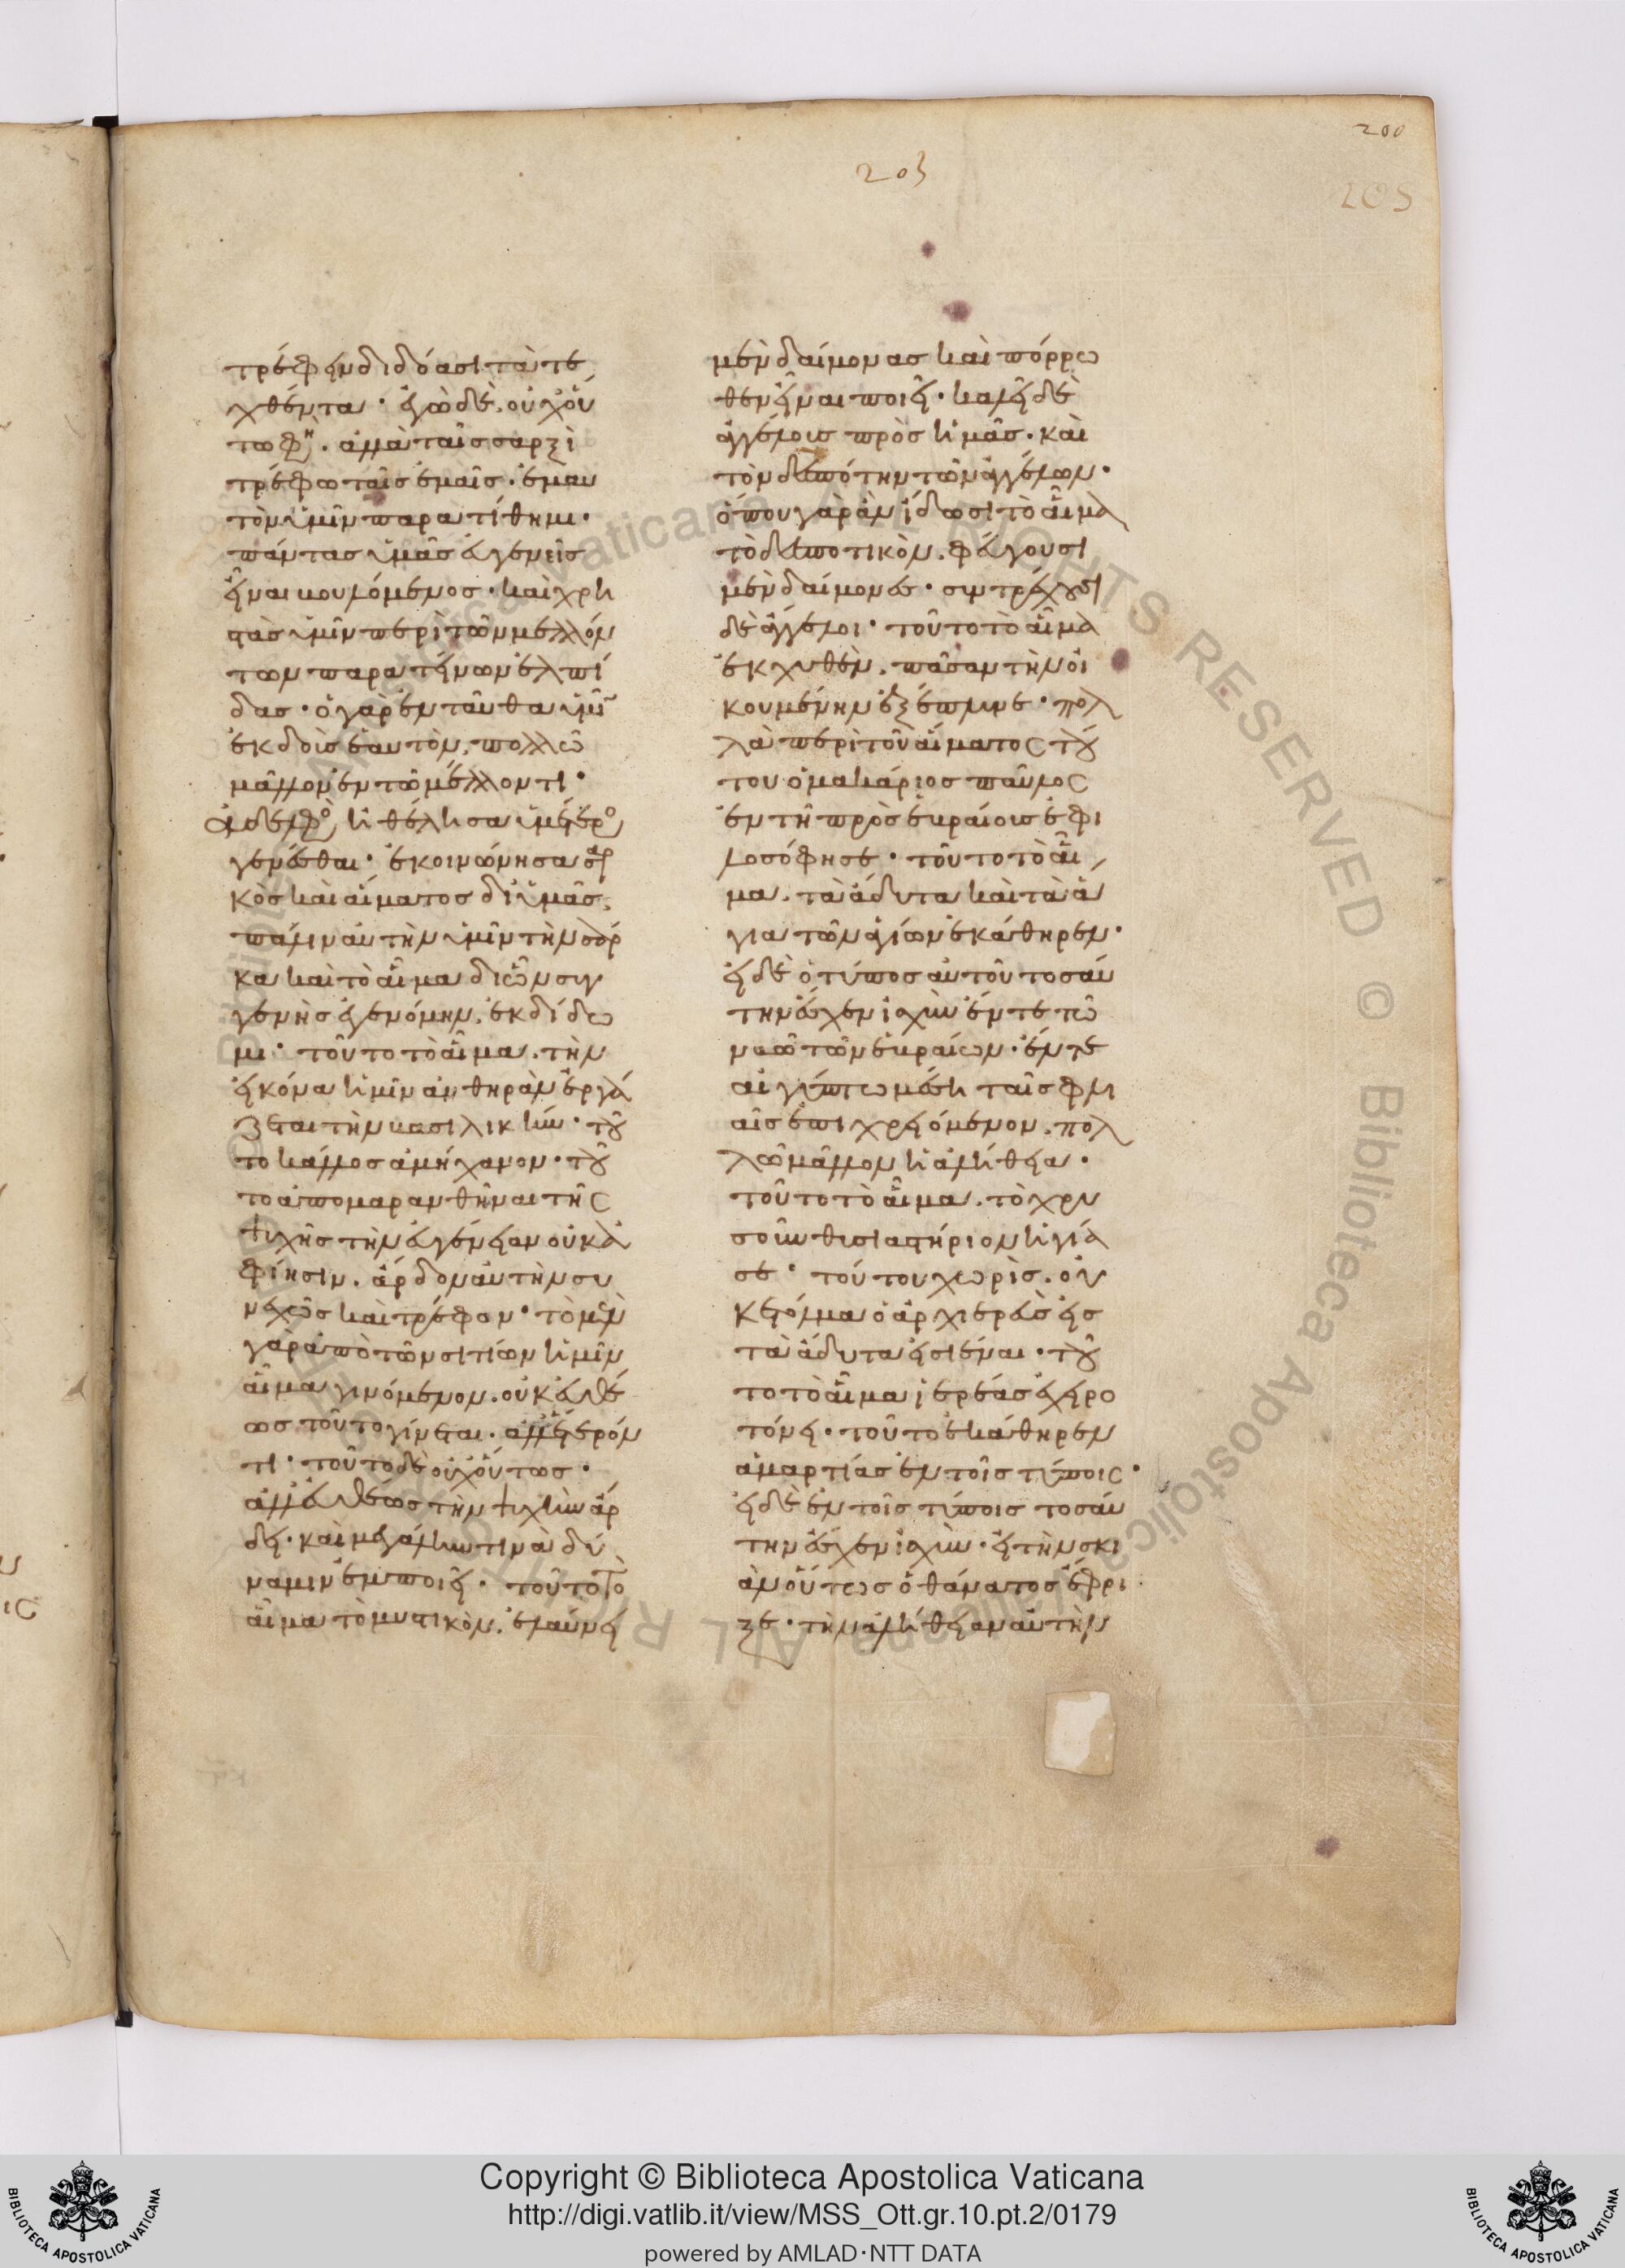 200
203
205
τρέφειν διδόασι τὰ τε
χθέντα· ἐγὼ δὲ, οὐχ οὕ
τω φη. ἀλλὰ ταῖς σαρξὶ
τρέφω ταῖς ἐμαῖς. ἐμαυ
τὸν ὑμῖν παρατίθημι·
πάντας ὑμᾶς εὐγενεῖς
εἶναι βουλόμενος· καὶ χρη
στὰς ὑμῖν περὶ τῶν μελλόν
των παρατείνων ἐλπί
δας· ὁ γὰρ ἐνταῦθα ὑμῖν
ἐκδοὺς ἑαυτὸν, πολλῶ
μᾶλλον ἐν τῶ μέλλοντι·
ἀδελφὸς ἠθέλησα ὑμέτερος
γενέσθαι· ἐκοινώνησα σαρ
κὸς καὶ αἵματος δι' ὑμᾶς.
πάλιν αὐτὴν ὑμῖν τὴν σάρ
κα καὶ τὸ αἷμα δι' ὧν συγ
γενὴς ἐγενόμην, ἐκδίδω
μι· τοῦτο τὸ αἷμα, τὴν
εἰκόνα ἡμῖν ἀνθηρὰν ἐργά
ζεται τὴν βασιλικήν· τοῦ
το κάλλος ἀμήχανον· τοῦ
το ἀπομαρανθῆναι τῆς
ψυχῆς τὴν εὐγένειαν οὐκ ἀ
φίησιν. ἄρδον αὐτὴν συ
νεχῶς καὶ τρέφον· τὸ μὲν
γὰρ ἀπὸ τῶν σιτίων ἡμῖν
αἷμα γινόμενον, οὐκ εὐθέ
ως τοῦτο γίνεται. ἀλλ' ἕτερόν
τι· τοῦτο δὲ οὐχ οὕτως·
ἀλλ' εὐθέως τὴν ψυχὴν ἄρ
δει· καὶ μεγάλην τινὰ δύ
ναμιν ἐμποιεῖ. τοῦτο τὸ
αἷμα τὸ μυστικὸν, ἐλαύνει
μὲν δαίμονας καὶ πόρρω
θεν εἶναι ποιεῖ· καλεῖ δὲ
ἀγγέλους πρὸς ἡμᾶς· καὶ
τὸν δεσπότην τῶν ἀγγέλων·
ὅπου γὰρ ἂν ἴδωσι τὸ αἷμα
τὸ δεσποτικὸν, φεύγουσι
μὲν δαίμονες· συντρέχουσι
δὲ ἄγγελοι· τοῦτο τὸ αἷμα
ἐκχυθὲν, πᾶσαν τὴν οἰ
κουμένην ἐξέπλυνε· πολ
λὰ περὶ τοῦ αἵματος τού
του ὁ μακάριος παῦλος
ἐν τῆ πρὸς ἑβραίους ἐφι
λοσόφησε· τοῦτο τὸ αἷ
μα, τὰ ἄδυτα καὶ τὰ ἅ
για τῶν ἁγίων ἐκάθηρεν·
εἰ δὲ ὁ τύπος αὐτοῦ τοσαύ
την ἔσχεν ἰσχὺν ἔν τε τῶ
ναῶ τῶν ἑβραίων. ἔν τε
αἰγύπτω μέση ταῖς φλι
αῖς ἐπιχρειόμενον, πολ
λῶ μᾶλλον ἡ ἀλήθεια·
τοῦτο τὸ αἷμα, τὸ χρυ
σοῦν θυσιαστήριον ἡγία
σε· τούτου χωρὶς, οὐ
κ ἐτόλμα ὁ ἀρχιερεὺς εἰς
τὰ ἄδυτα εἰσιέναι· τοῦ
το τὸ αἷμα ἱερέας ἐχειρο
τόνει· τοῦτο ἐκάθηρεν
ἁμαρτίας ἐν τοῖς τύποις·
εἰ δὲ ἐν τοῖς τύποις τοσαύ
την ἔσχεν ἰσχὺν· εἰ τὴν σκι
ὰν οὕτως ὁ θάνατος ἔφρι
ξε· τὴν ἀλήθειαν αὐτὴν
Copyright © Biblioteca Apostolica Vaticana
http://digi.vatlib.it/view/MSS_Ott.gr.10.pt.2/0179
powered by AMLAD·NTT DATA